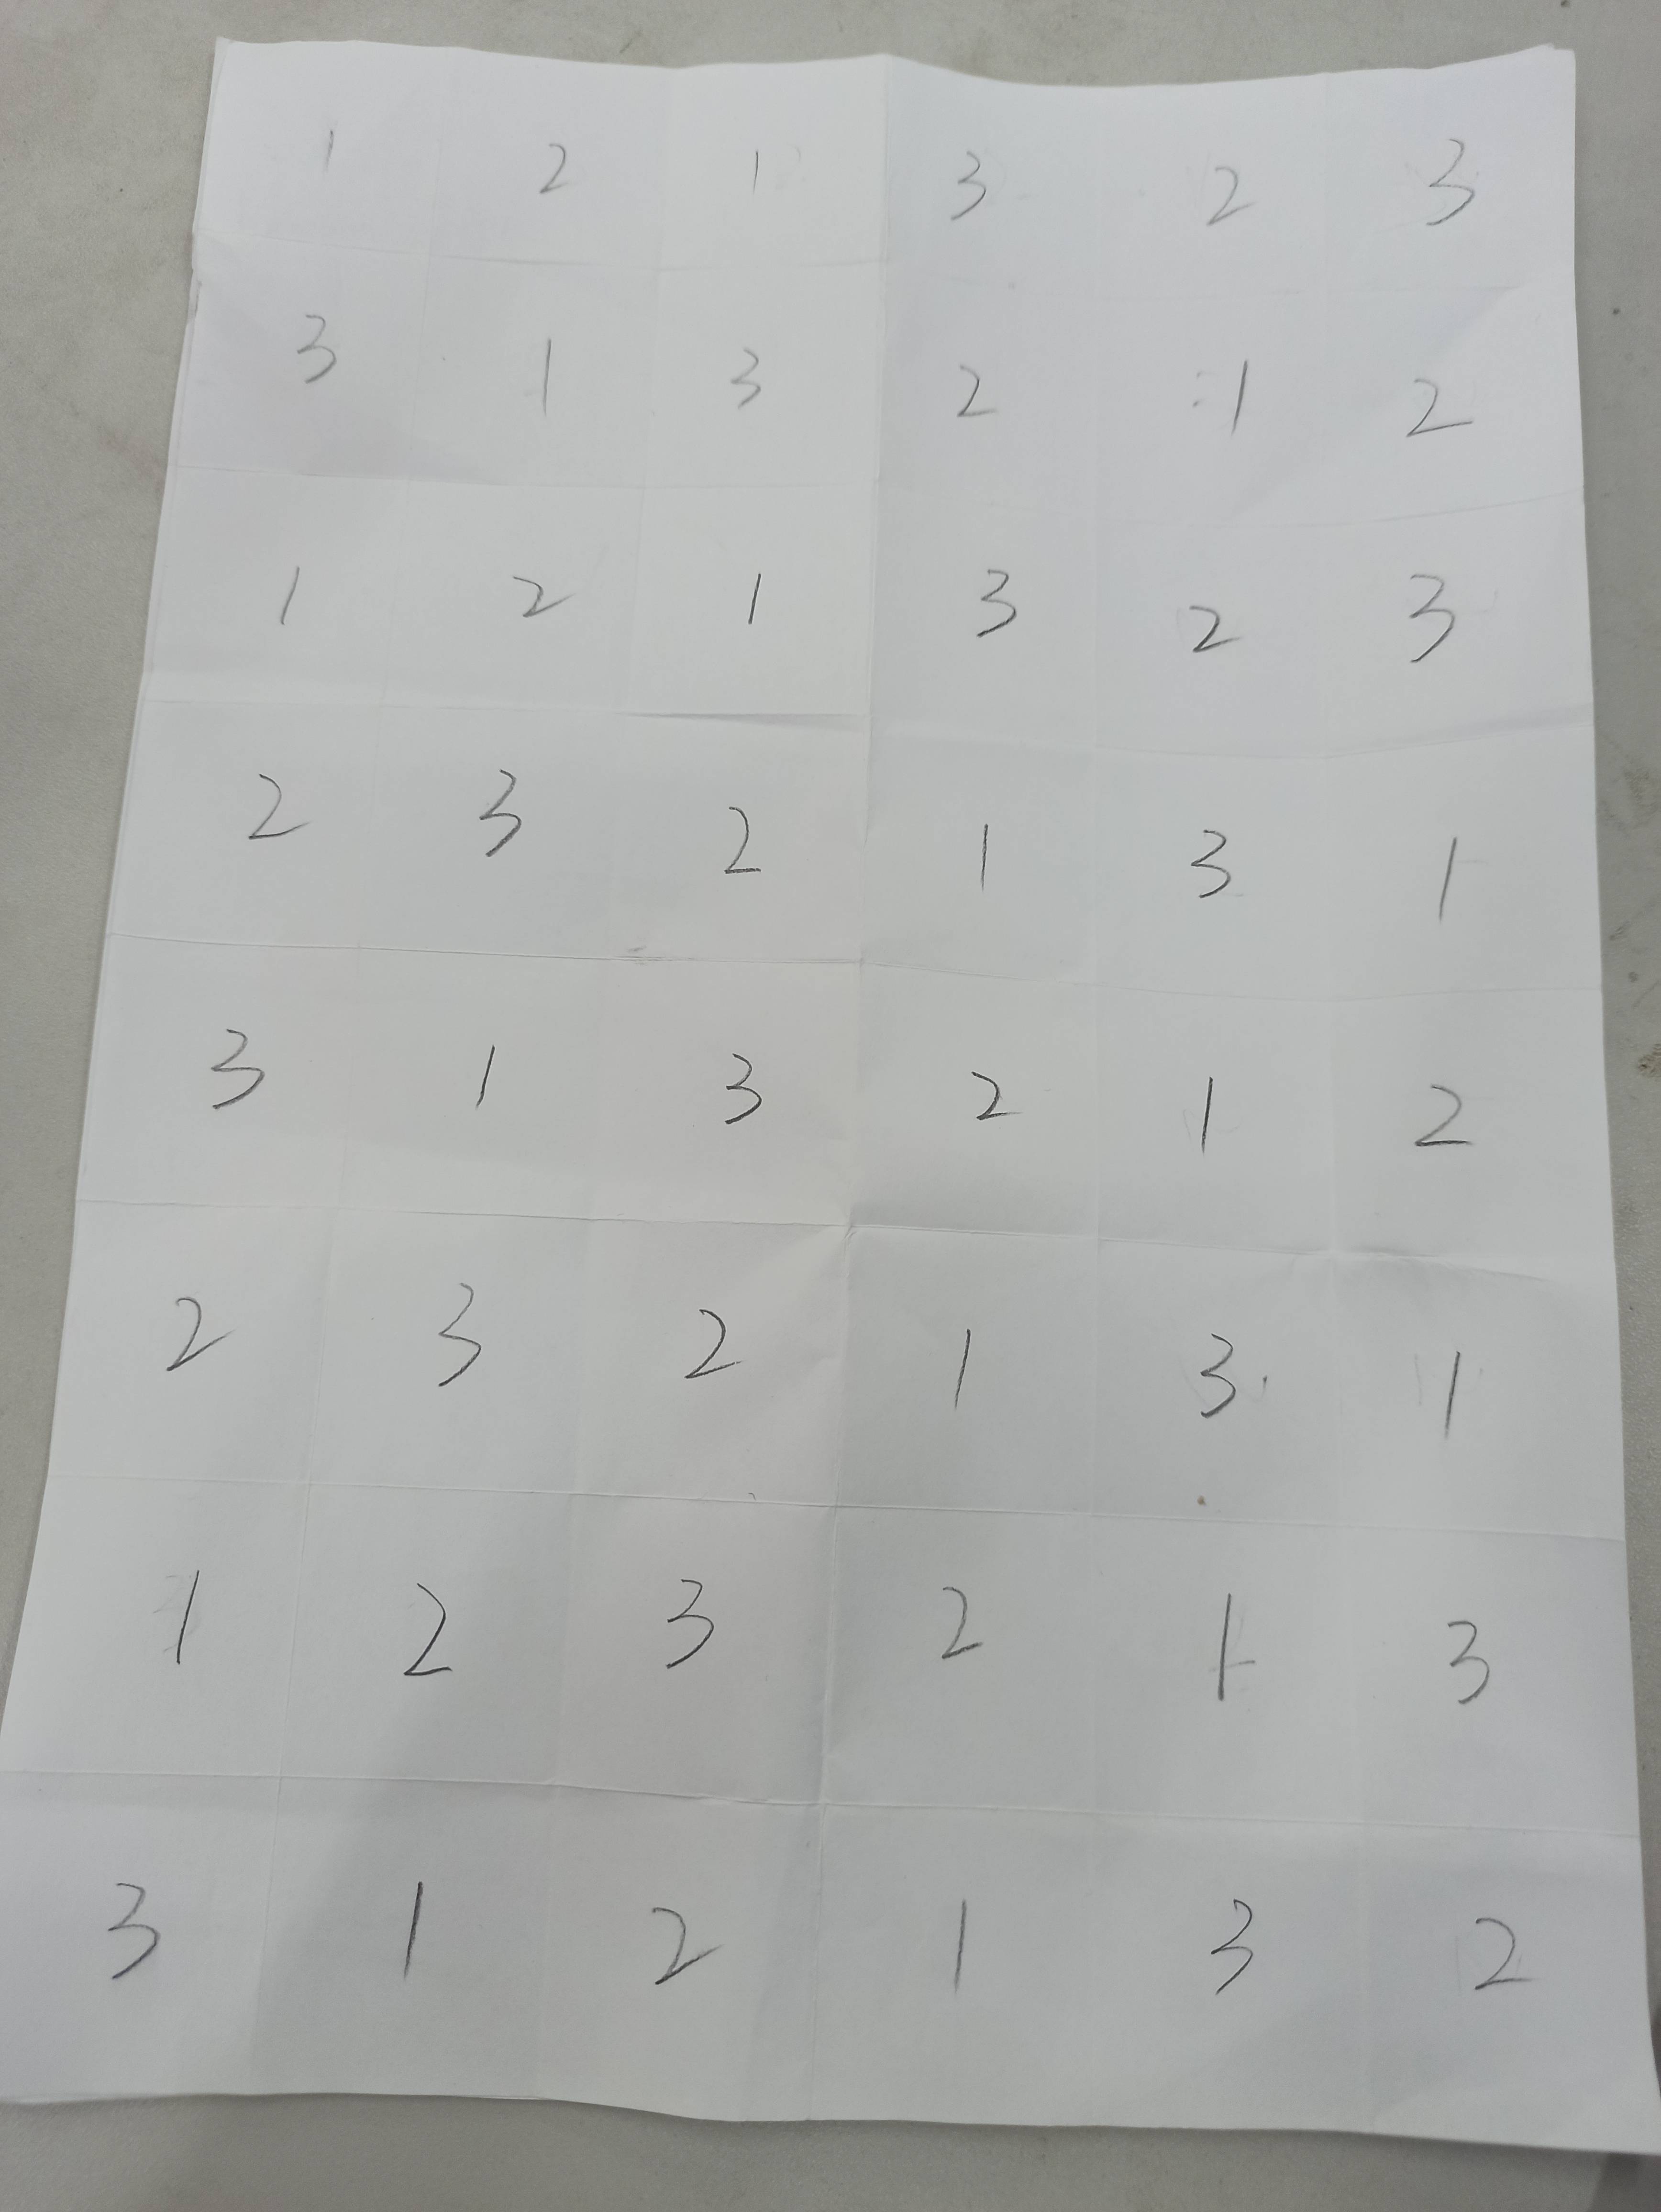 1 2 1 3 2 3
3 1 3 2 1 2
1 2 1 3 2 3
2 3 2 1 3 1
3 1 3 2 1 2
2 3 2 1 3 1
1 2 3 2 1 3
3 1 2 1 3 2